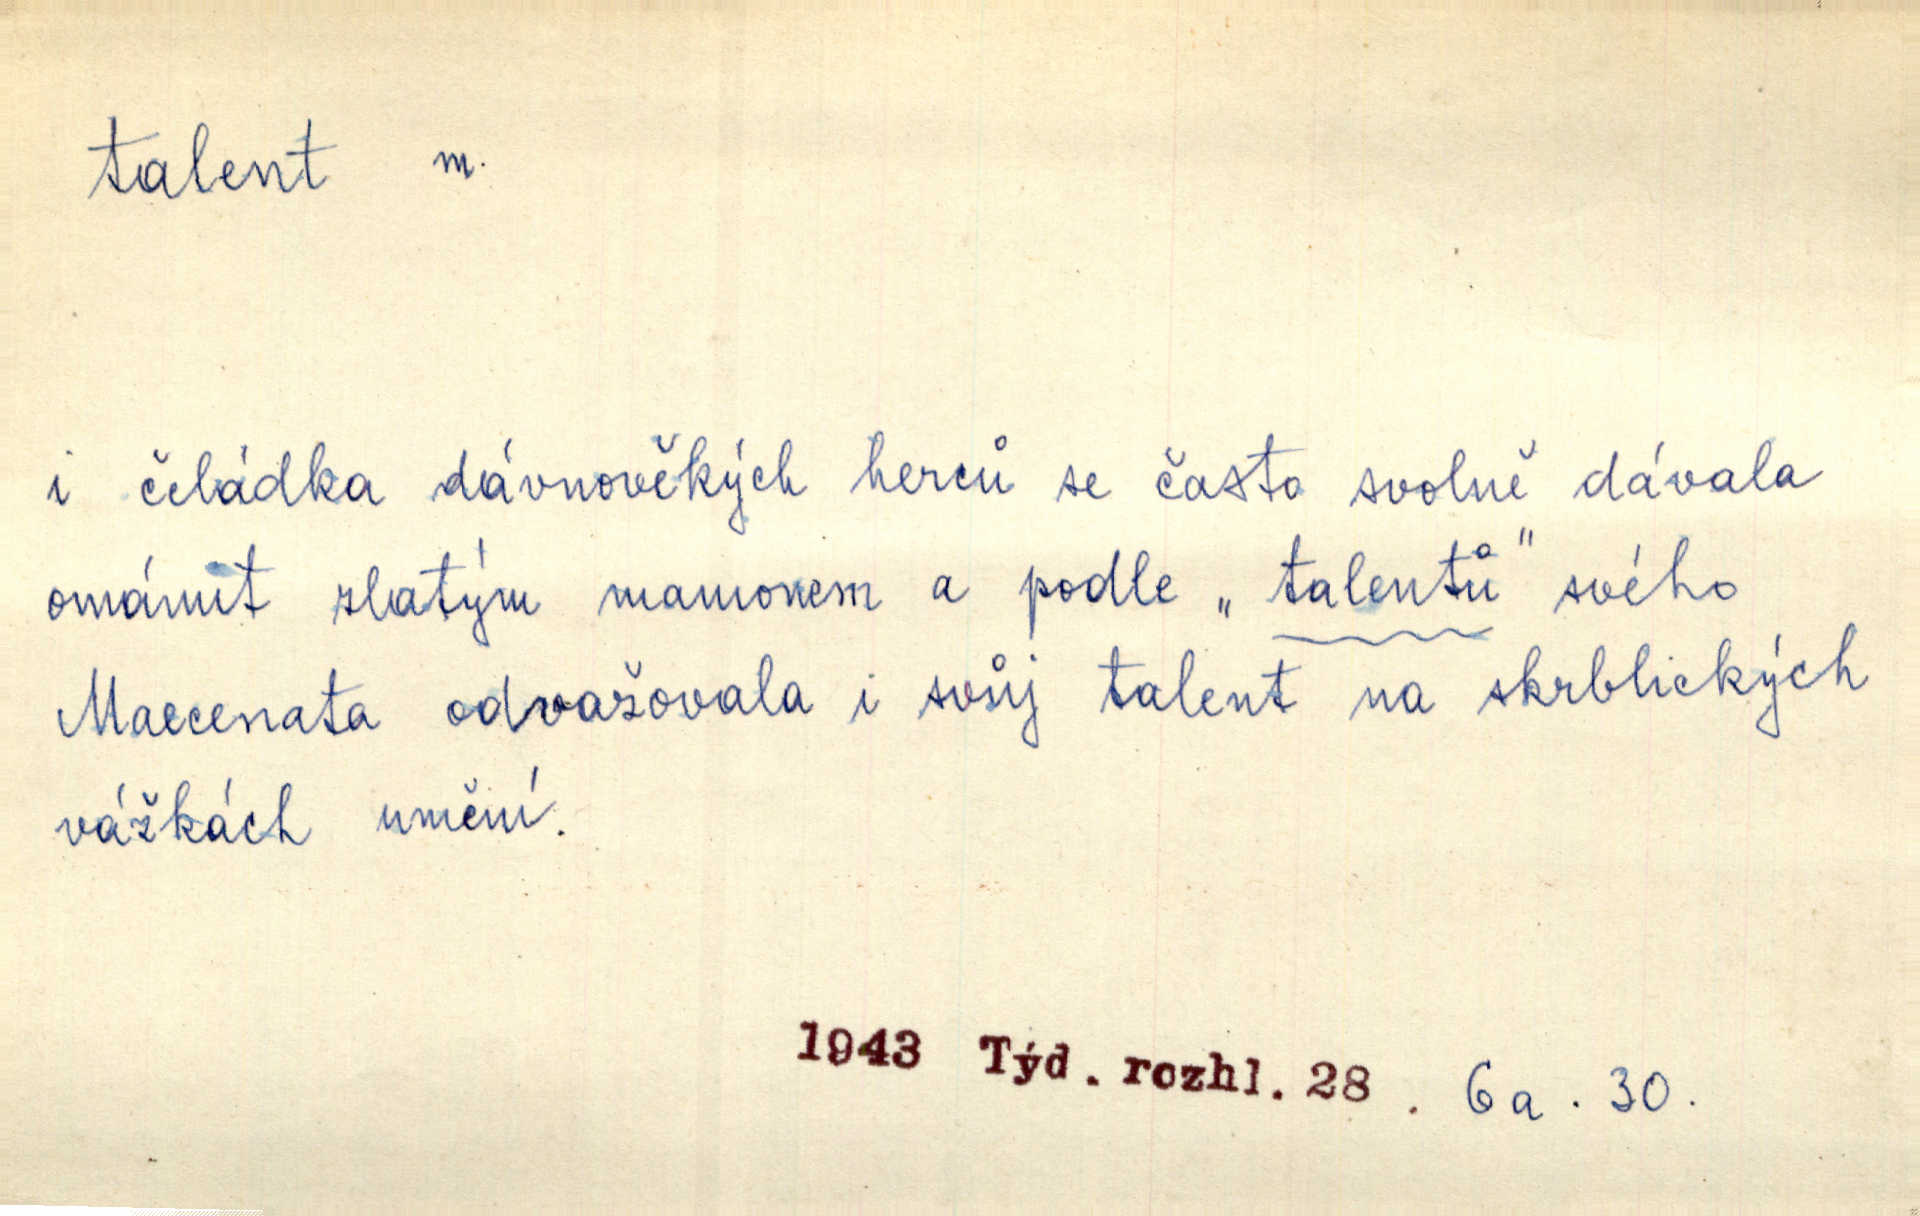 talent m.
i čeládka dávnověkých herců se často svolně dávala
omámit zlatým mamonem a podle „talentů" svého
Maecenata odvažovala i svůj talent na skrblických
vážkách umění.
1943 Týd. rozhl. 28. 6a. 30.